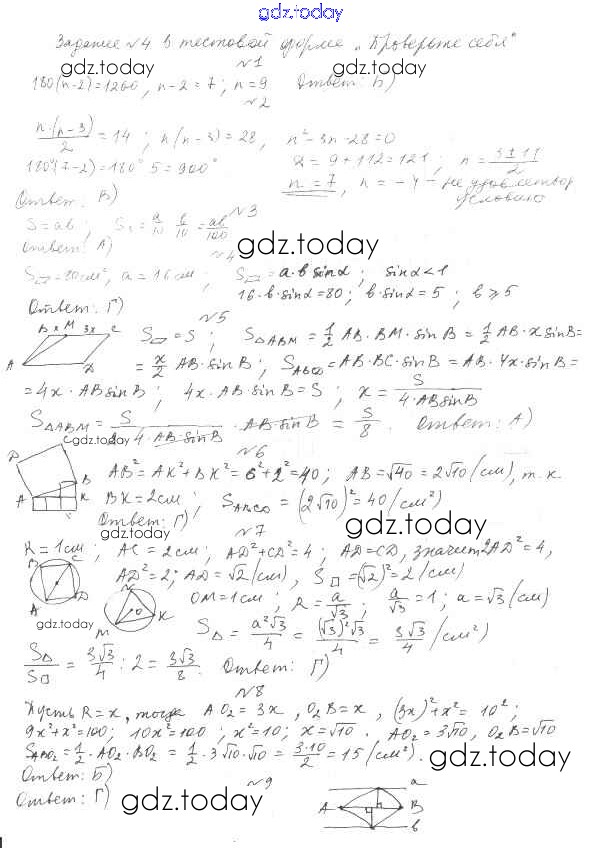 gdz.today
Задание №4 в тестовой форме „Проверьте себя"
gdz.today gdz.today
№1
180(n-2)=1260, n-2=7; n=9 Ответ: Б)
№2
n·(n-3)/2 = 14 ; n(n-3)=28, n²-3n-28=0
180°(7-2)=180°·5=900° D = 9+112=121, n = (3±11)/2
Ответ: В) n=7, n = -4 - не удовлетвор условию
№3
S=ab ; S₁ = a/10 · b/10 = ab/100
Ответ: А)
gdz.today
№4
S▱=80см², a=16см ; S▱=a·b sinα ; sinα<1
16·b·sinα=80; b·sinα=5 ; b≥5
Ответ: Г)
№5
B x M 3x C
S▱=S ; S△ABM = 1/2 AB·BM·sinB = 1/2 AB·x sinB=
A D
= x/2 AB·sinB ; SABCD=AB·BC·sinB = AB·4x·sinB =
=4x·AB sinB ; 4x·AB sinB=S ; x = S/(4·AB sinB)
S△ABM = S/(2·4·AB sinB) · AB sinB = S/8 . Ответ: А)
gdz.today
№6
D C B A K
AB²=AK²+BK²=6²+2²=40; AB=√40=2√10 (см), т.к.
BK=2см ; SABCD=(2√10)²=40(см²)
Ответ: Г)
gdz.today gdz.today
№7
R=1см; AC=2см; AD²+CD²=4; AD=CD, значит 2AD²=4,
B C A D
AD²=2; AD=√2(см), S□=(√2)²=2(см)
N O K M
OM=1см; R = a/√3 ; a/√3=1; a=√3(см)
gdz.today
S△ = a²√3/4 = (√3)²√3/4 = 3√3/4 (см²)
S△/S□ = 3√3/4 : 2 = 3√3/8 . Ответ: Г)
№8
Пусть R=x, тогда AO₂=3x, O₂B=x, (3x)²+x²=10²;
9x²+x²=100; 10x²=100; x²=10; x=√10. AO₂=3√10, O₂B=√10
SABO₂=1/2·AO₂·BO₂ = 1/2·3√10·√10 = 3·10/2 = 15(см²).
Ответ: Б)
№9
Ответ: Г)
a
A B
b
gdz.today gdz.today